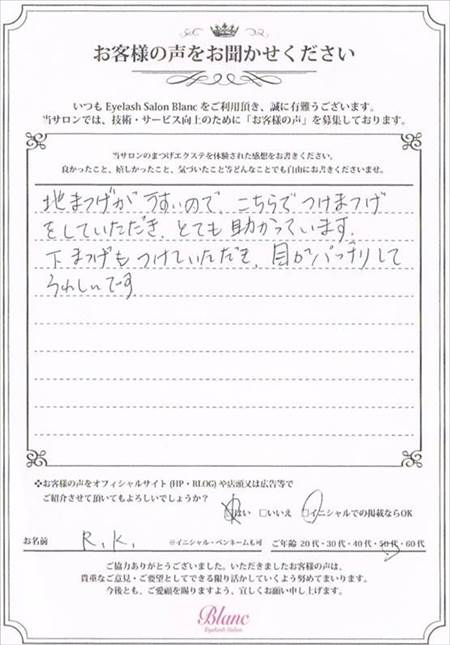 お客様の声をお聞かせください
いつも Eyelash Salon Blanc をご利用頂き、誠に有難うございます。
当サロンでは、技術・サービス向上のために「お客様の声」を募集しております。
当サロンのまつげエクステを体験された感想をお書きください。
良かったこと、嬉しかったこと、気づいたこと等どんなことでも自由にお書きくださいませ。
地まつげがうすいので、こちらでつけまつげ
をしていただき、とても助かっています。
下まつげもつけていただき、目がパッチリして
うれしいです
❖お客様の声をオフィシャルサイト (HP・BLOG) や店頭又は広告等で
ご紹介させて頂いてもよろしいでしょうか？ □はい □いいえ □イニシャルでの掲載ならOK
お名前 R.K. ※イニシャル・ペンネームも可 ご年齢 20代・30代・40代・50代・60代
ご協力ありがとうございました。いただきましたお客様の声は、
貴重なご意見・ご要望としてできる限り活かしていくよう努めてまいります。
今後とも、ご愛顧を賜りますよう、宜しくお願い申し上げます。
Blanc
Eyelash Salon